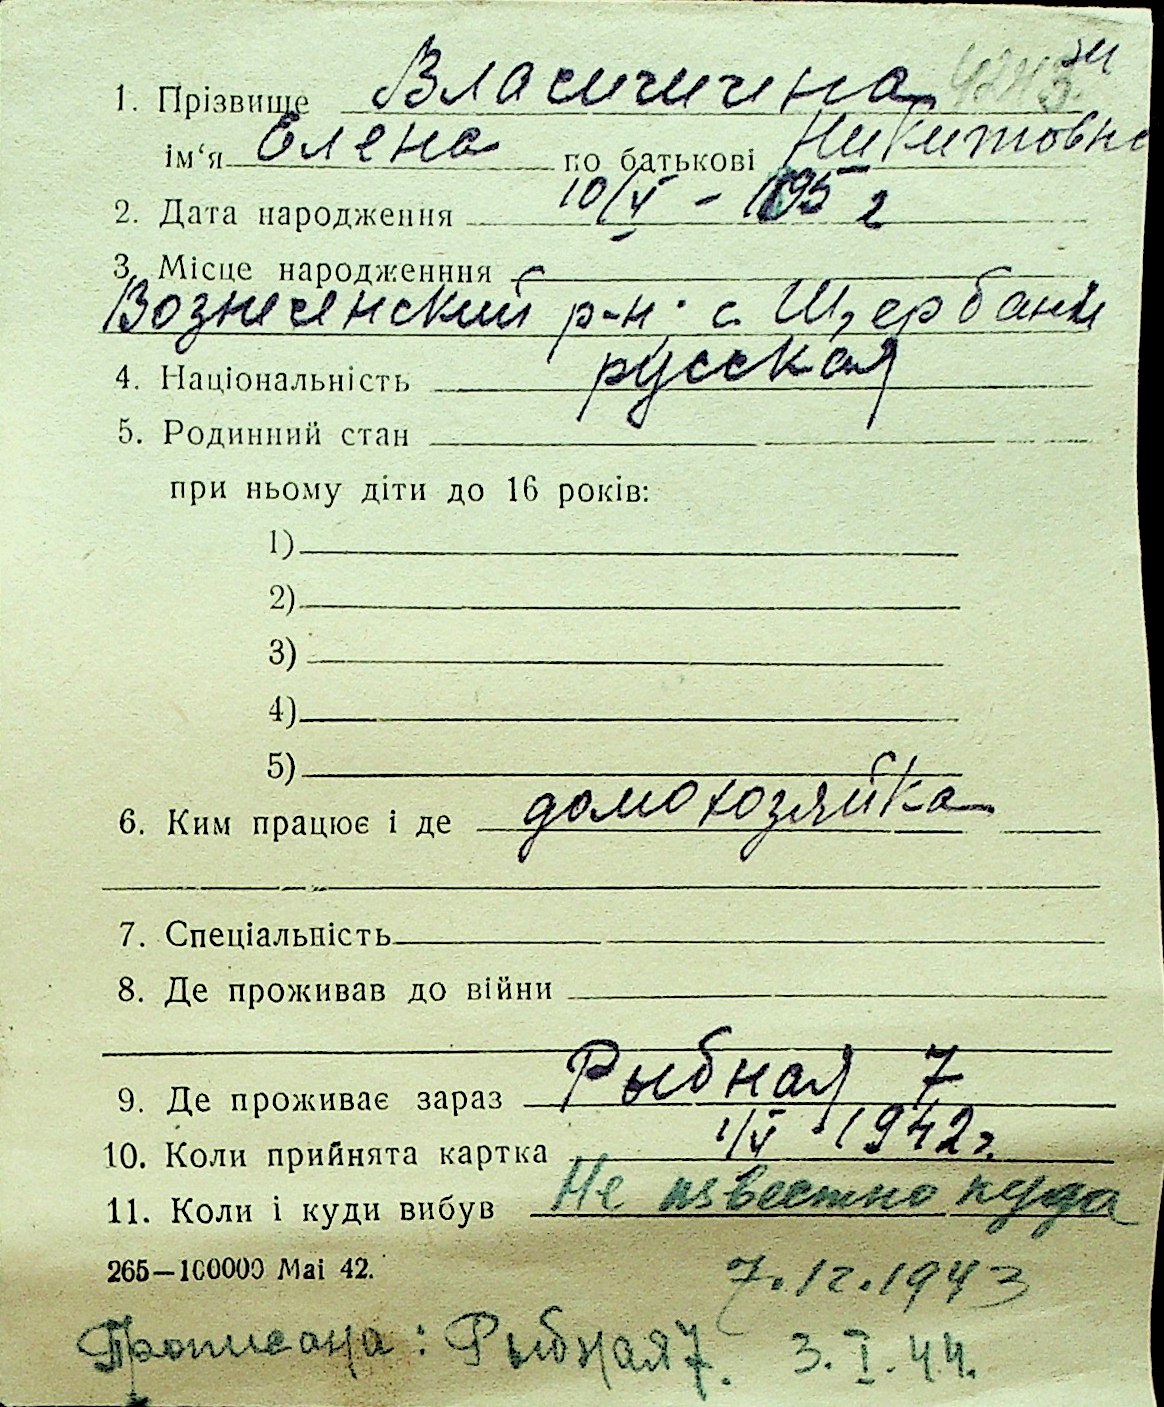 1. Прізвище Власичичена 4243
ім'я Елена по батькові Никитовна
2. Дата народження 10/V – 1895 г
3. Місце народженння с.
Вознеченский р-н. с. Щербани
4. Національність русская
5. Родинний стан
при ньому діти до 16 років:
1)
2)
3)
4)
5)
6. Ким працює і де домохозяйка
7. Спеціальність
8. Де проживав до війни
9. Де проживає зараз Рыбная 7
10. Коли прийнята картка 1/V 1942 г.
11. Коли і куди вибув Не известно куда
265—100000 Mai 42. 7.12.1943
Прописана: Рыбная 7. 3.I.44.